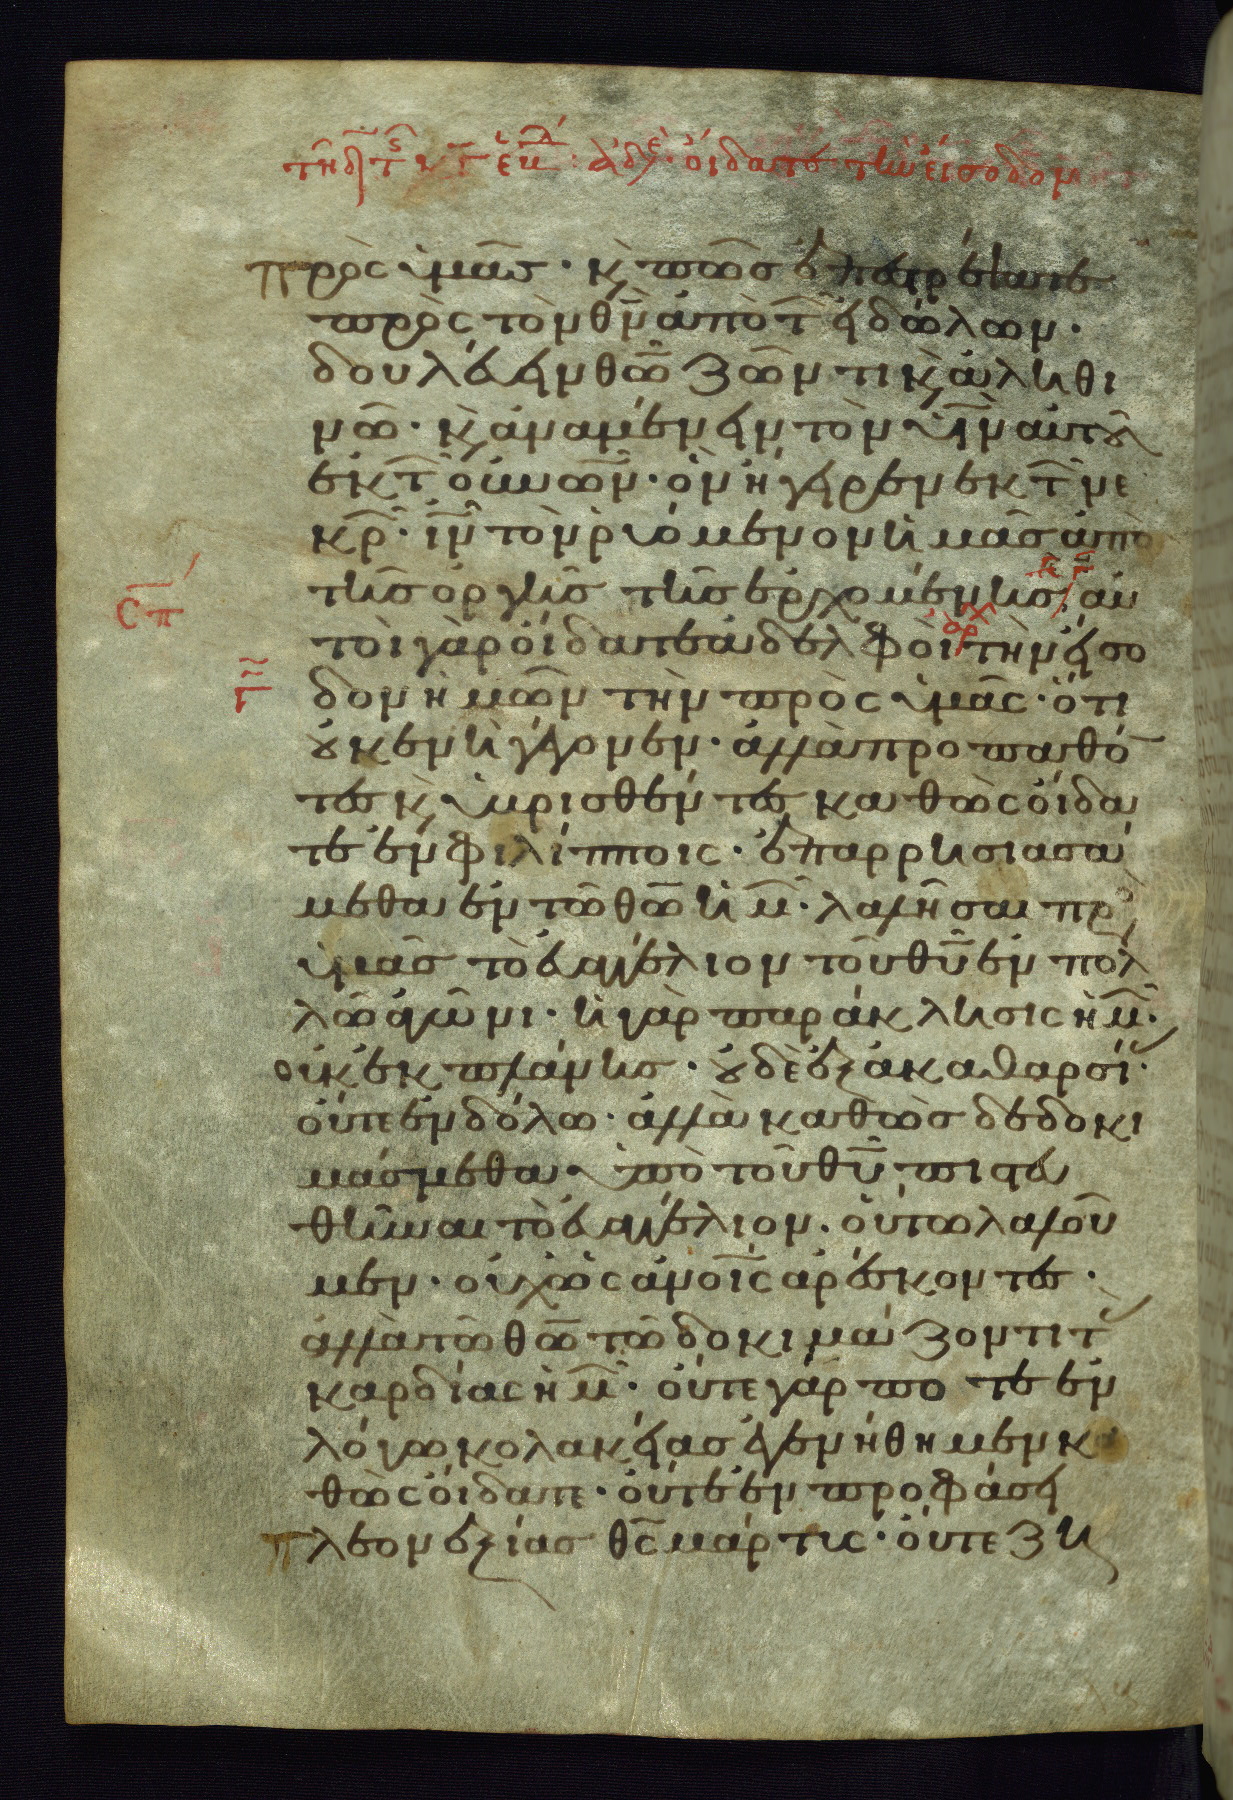 τῆ δ τ ς κ τ ἑβ · ἀδε · οἴδατε τὴν εἴσοδον
πρὸς ὑμᾶς · κ πῶς ἐπεστρέψατε
πρὸς τὸν θν ἀπὸ τ εἰδώλων ·
δουλεύειν θῶ ζῶντι κ ἀληθι
νῶ · κ ἀναμένειν τὸν υἱν αὐτοῦ
ἐκ τ οὐνῶν · ὃν ἤγειρεν ἐκ τ νε
κρ · ιν τὸν ῥυόμενον ἡμᾶς ἀπὸ
τῆς ὀργῆς τῆς ἐρχομένης · αὐ
σπ
τοὶ γὰρ οἴδατε ἀδελφοὶ τὴν εἴσο
γ
δον ἡμῶν τὴν πρὸς ὑμᾶς · ὅτι
οὐ κενὴ γέγονεν · ἀλλὰ προπαθό
τες κ ὑβρισθέντες καθὼς οἴδα
τε ἐν φιλίπποις · ἐπαρρησιασά
μεθα ἐν τῶ θῶ ἡμ · λαλῆσαι πρ
ὑμᾶς τὸ εὐαγγέλιον τοῦ θυ ἐν πολ
λῶ ἀγῶνι · ἡ γὰρ παράκλησις ἡμ ·
οὐκ ἐκ πλάνης · οὐδὲ ἐξ ἀκαθαρσί ·
οὔτε ἐν δόλω · ἀλλὰ καθὼς δεδοκι
μάσμεθα ὑπὸ τοῦ θυ πιστευ
θῆναι τὸ εὐαγγέλιον · οὕτω λαλοῦ
μεν · οὐχ ὡς ἀνοις ἀρέσκοντες ·
ἀλλὰ τῶ θῶ τῶ δοκιμάζοντι τ
καρδίας ἡμ · οὔτε γάρ ποτε ἐν
λόγω κολακείας ἐγενήθημεν κα
θὼς οἴδατε · οὔτε ἐν προφάσει
πλεονεξίας θς μάρτυς · οὔτε ζη